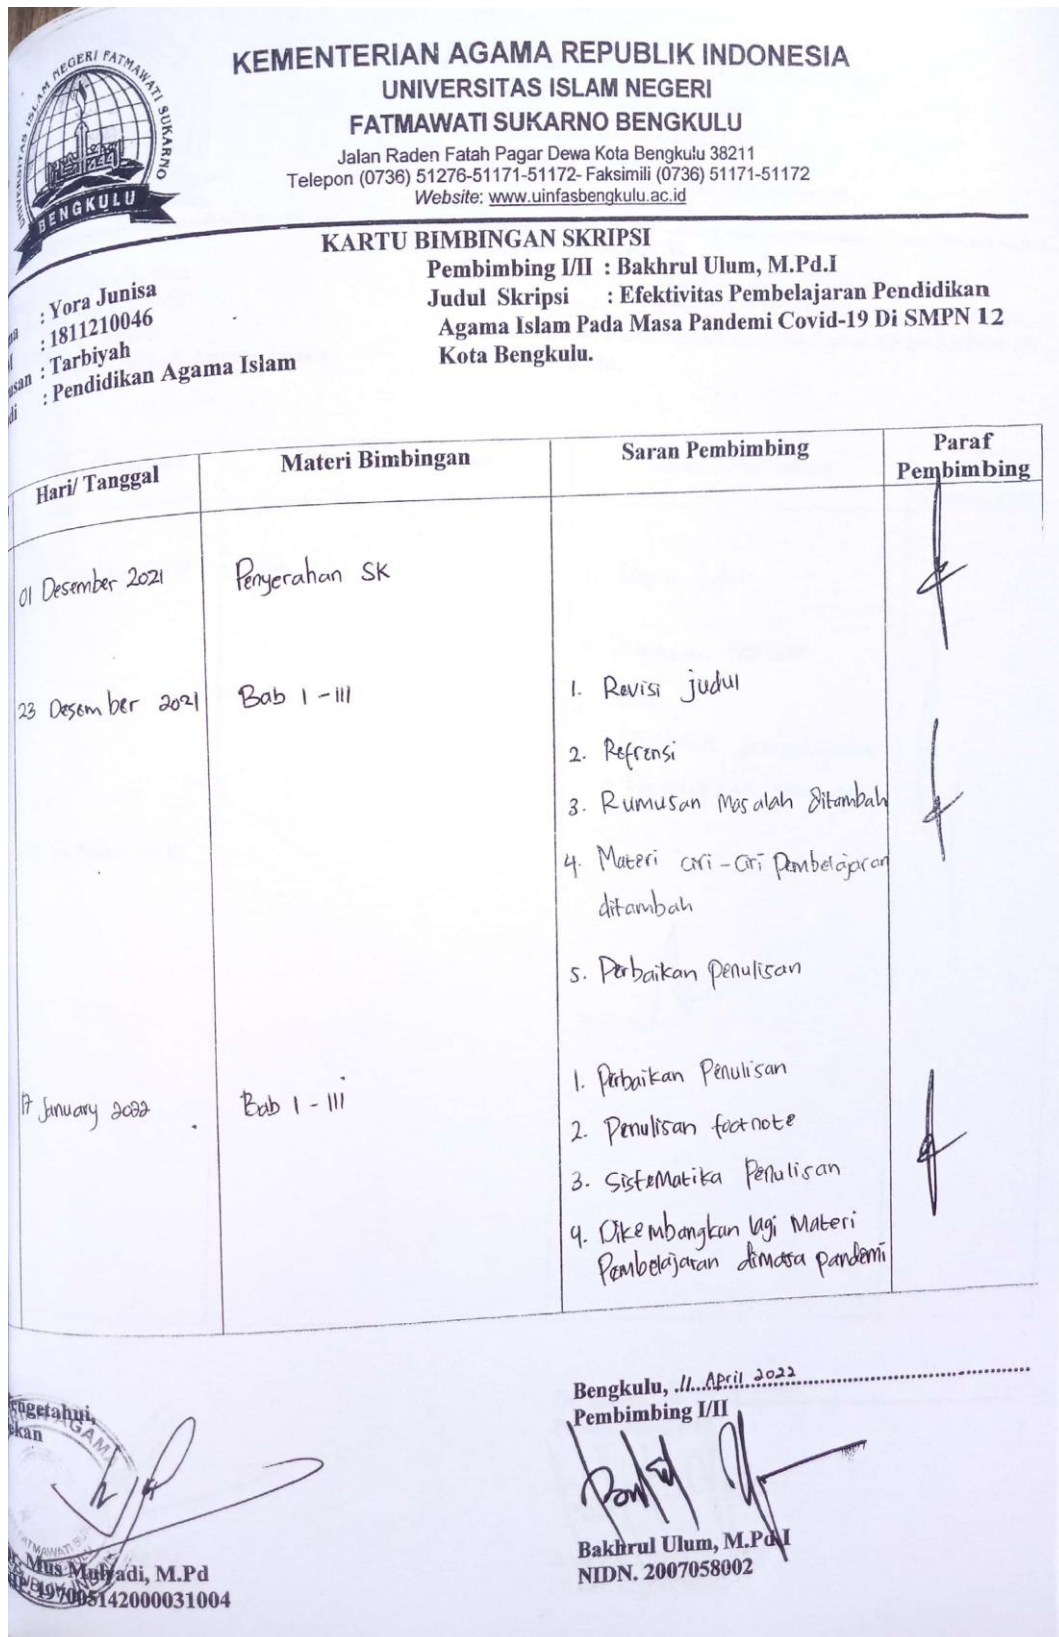 UNIVERSITAS ISLAM NEGERI FATMAWATI SUKARNO
BENGKULU
KEMENTERIAN AGAMA REPUBLIK INDONESIA
UNIVERSITAS ISLAM NEGERI
FATMAWATI SUKARNO BENGKULU
Jalan Raden Fatah Pagar Dewa Kota Bengkulu 38211
Telepon (0736) 51276-51171-51172- Faksimili (0736) 51171-51172
Website: www.uinfasbengkulu.ac.id
KARTU BIMBINGAN SKRIPSI
: Yora Junisa
: 1811210046
: Tarbiyah
: Pendidikan Agama Islam
Pembimbing I/II : Bakhrul Ulum, M.Pd.I
Judul Skripsi : Efektivitas Pembelajaran Pendidikan
Agama Islam Pada Masa Pandemi Covid-19 Di SMPN 12
Kota Bengkulu.
Hari/ Tanggal Materi Bimbingan Saran Pembimbing Paraf
Pembimbing
01 Desember 2021 Penyerahan SK
23 Desember 2021 Bab I - III 1. Revisi judul
2. Refrensi
3. Rumusan Masalah Ditambah
4. Materi ciri - ciri Pembelajaran
ditambah
5. Perbaikan Penulisan
17 January 2022 Bab I - III 1. Perbaikan Penulisan
2. Penulisan footnote
3. Sistematika Penulisan
4. Dikembangkan lagi Materi
Pembelajaran dimasa pandemi
Bengkulu, 11 April 2022
Pembimbing I/II
Bakhrul Ulum, M.Pd.I
NIDN. 2007058002
Mus Mulyadi, M.Pd
197005142000031004